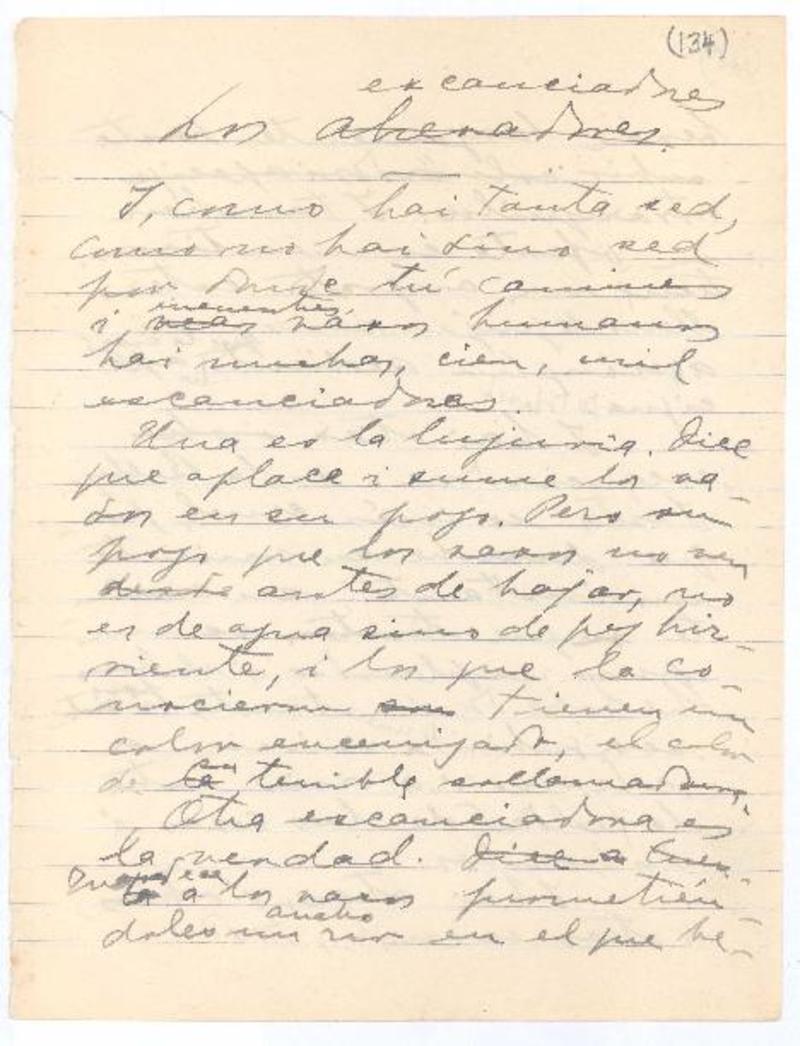 (134)
escanciadores
Los abrevadores.
I, como hai tanta sed,
como no hai sino sed
por donde tú camines
encuentres
i veas vasos humanos
hai muchos, cien, mil
escanciadores.
Una es la lujuria. Dice
que aplace i sume los va-
sos en su pozo. Pero su
pozo que los vasos no ven
desde antes de bajar, no
es de agua sino de pez hir-
viente, i los que la co-
nocieron son tienen un
color encenizado, el color
de la su terrible sollamadura.
Otra escanciadora es
la verdad. Dice a
a los vasos prometién-
ancho
doles un río en el que be-